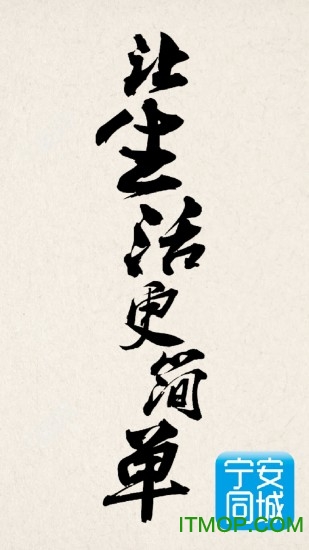 让生活更简单
宁安
同城
ITMOP.COM